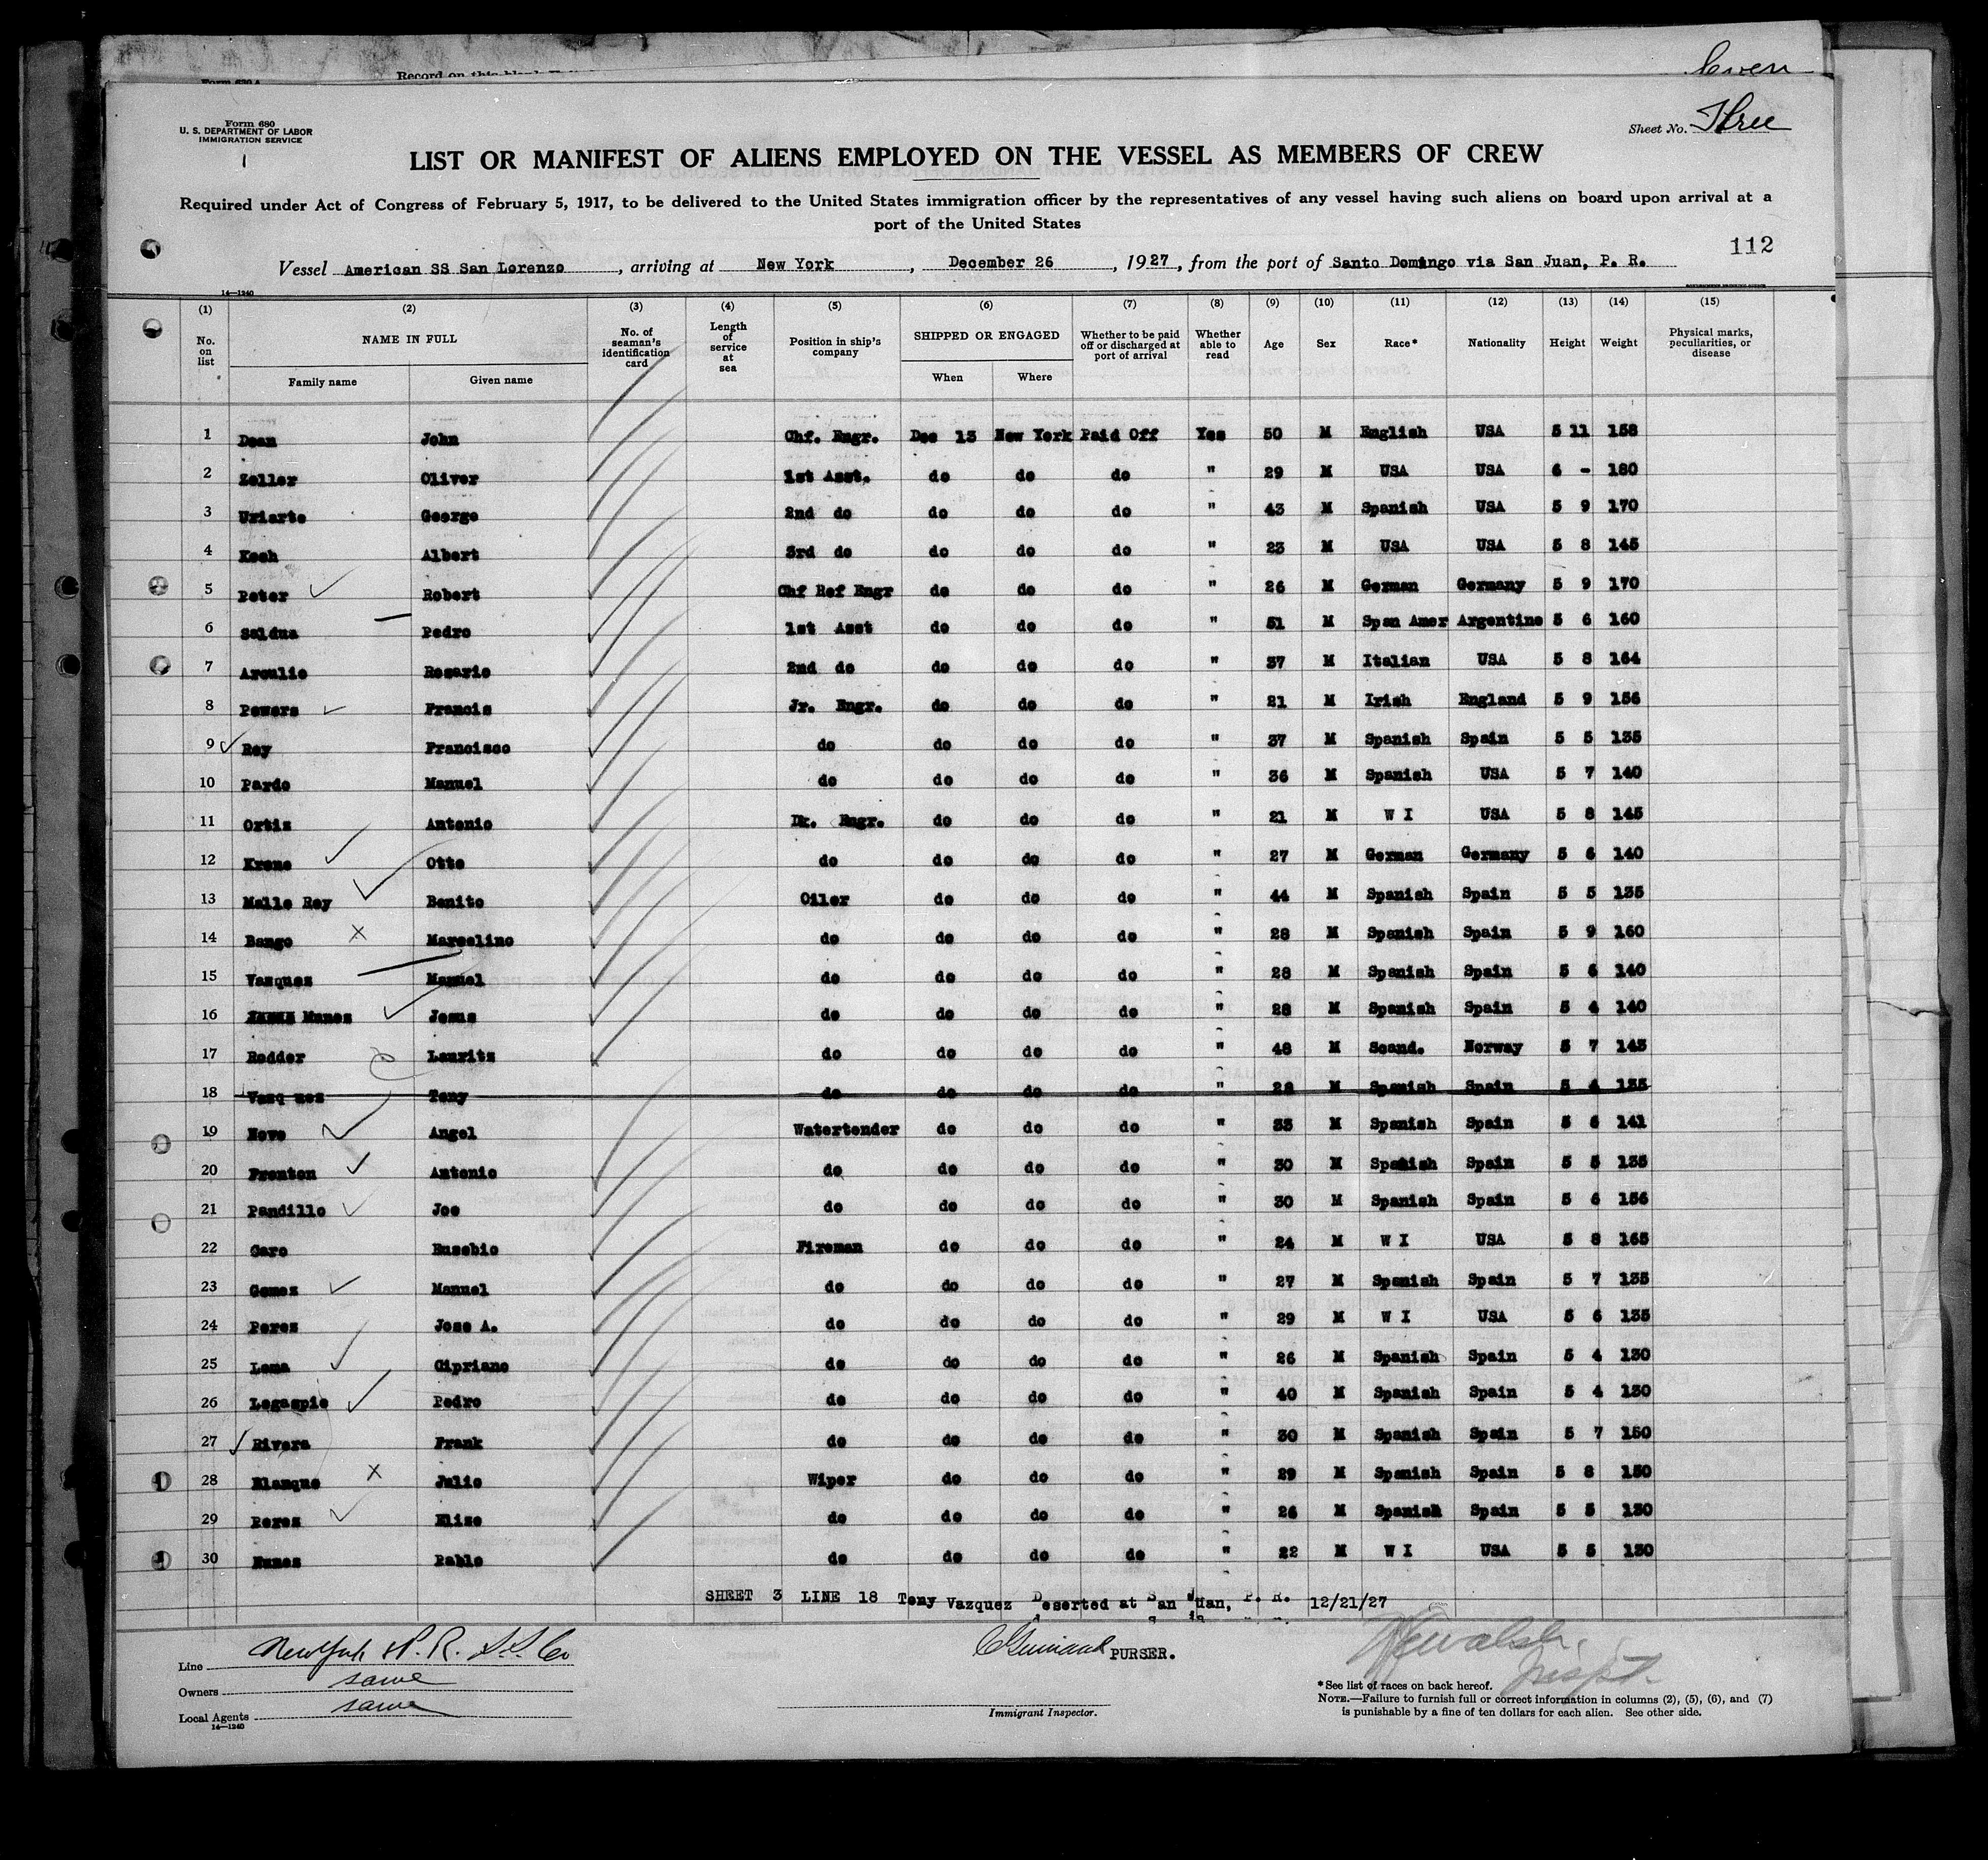 Record on this blank
Form 680
U. S. DEPARTMENT OF LABOR
IMMIGRATION SERVICE
1
Sheet No. Three
LIST OR MANIFEST OF ALIENS EMPLOYED ON THE VESSEL AS MEMBERS OF CREW
Required under Act of Congress of February 5, 1917, to be delivered to the United States immigration officer by the representatives of any vessel having such aliens on board upon arrival at a
port of the United States
112
Vessel American SS San Lorenzo, arriving at New York, December 26, 1927, from the port of Santo Domingo via San Juan, P. R.
14—1240
(1) (2) (3) (4) (5) (6) (7) (8) (9) (10) (11) (12) (13) (14) (15)
No. on list NAME IN FULL Family name Given name No. of seaman's identification card Length of service at sea Position in ship's company SHIPPED OR ENGAGED When Where Whether to be paid off or discharged at port of arrival Whether able to read Age Sex Race* Nationality Height Weight Physical marks, peculiarities, or disease
1 Dean John Chf. Engr. Dec 13 New York Paid Off Yes 50 M English USA 5 11 158
2 Zeller Oliver 1st Asst. do do do " 29 M USA USA 6 - 180
3 Uriarte George 2nd do do do do " 43 M Spanish USA 5 9 170
4 Koch Albert 3rd do do do do " 23 M USA USA 5 8 145
5 Peter Robert Chf Ref Engr do do do " 26 M German Germany 5 9 170
6 Saldua Pedro 1st Asst do do do " 51 M Span Amer Argentine 5 6 160
7 Arculio Rosario 2nd do do do do " 37 M Italian USA 5 8 164
8 Powers Francis Jr. Engr. do do do " 21 M Irish England 5 9 156
9 Rey Francisco do do do do " 37 M Spanish Spain 5 5 135
10 Pardo Manuel do do do do " 36 M Spanish USA 5 7 140
11 Ortiz Antonio Dk. Engr. do do do " 21 M W I USA 5 8 145
12 Krone Otto do do do do " 27 M German Germany 5 6 140
13 Malle Rey Benito Oiler do do do " 44 M Spanish Spain 5 5 135
14 Bango Marcelino do do do do " 28 M Spanish Spain 5 9 160
15 Vazquez Manuel do do do do " 28 M Spanish Spain 5 6 140
16 Munez Jesus do do do do " 28 M Spanish Spain 5 4 140
17 Rodder Laurits do do do do " 48 M Scand. Norway 5 7 145
18 Vazq uez Tony do do do do " 28 M Spanish Spain 5 4 135
19 Novo Angel Watertender do do do " 33 M Spanish Spain 5 6 141
20 Fronton Antonio do do do do " 30 M Spanish Spain 5 5 135
21 Pandillo Joe do do do do " 30 M Spanish Spain 5 6 156
22 Caro Eusebio Fireman do do do " 24 M W I USA 5 8 165
23 Gomez Manuel do do do do " 27 M Spanish Spain 5 7 135
24 Perez Jose A. do do do do " 29 M W I USA 5 6 135
25 Lema Cipriano do do do do " 26 M Spanish Spain 5 4 130
26 Legaspie Pedro do do do do " 40 M Spanish Spain 5 4 130
27 Rivera Frank do do do do " 30 M Spanish Spain 5 7 150
28 Blanque Julio Wiper do do do " 29 M Spanish Spain 5 8 150
29 Perez Elize do do do do " 26 M Spanish Spain 5 5 130
30 Nunez Pablo do do do do " 22 M W I USA 5 5 130
SHEET 3 LINE 18 Tony Vazquez Deserted at San Juan, P. R. 12/21/27
Line New York P. R. S.S. Co
PURSER.
Owners same
Local Agents same
14—1240
Immigrant Inspector.
*See list of races on back hereof.
NOTE.—Failure to furnish full or correct information in columns (2), (5), (6), and (7)
is punishable by a fine of ten dollars for each alien. See other side.